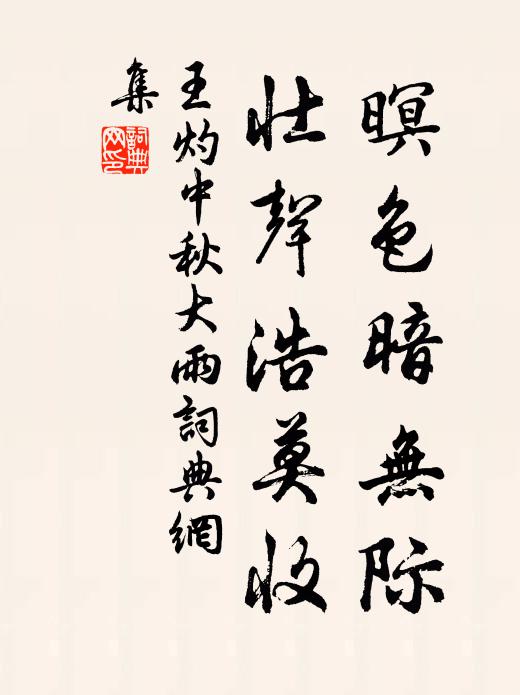 暝色暗無际
壮聲浩莫收
王灼中秋大雨詞典網
集
詞典
网印